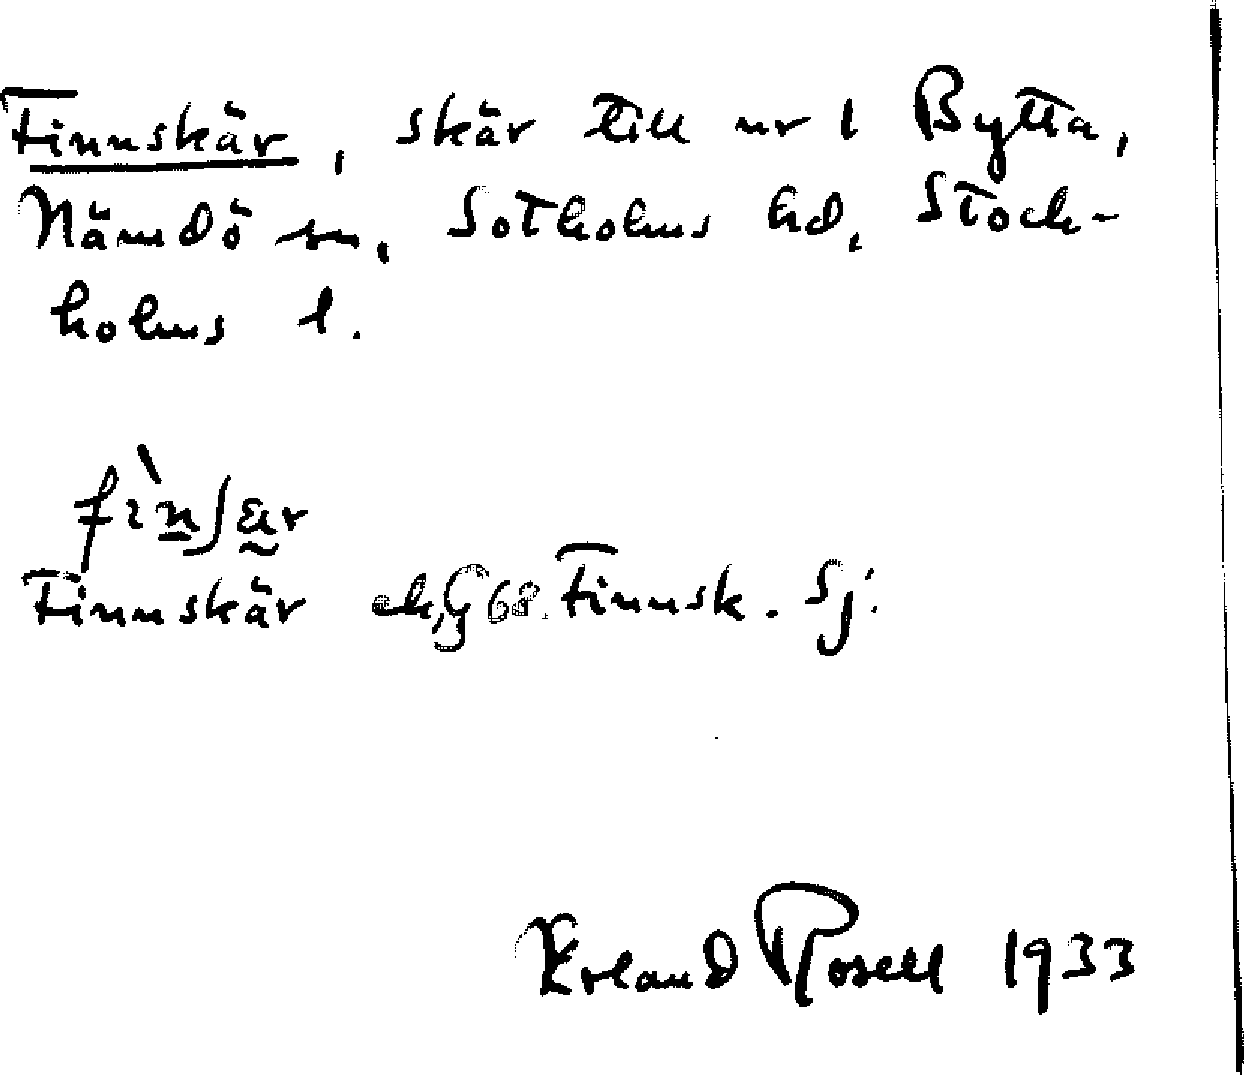 Finnskär, skär till nr 1 Bytta,
Nämdö sn, Sotholms hd, Stock-
holms l.
fìnʃær
Finnskär ek, G 68. Finnsk. Sj.
Erland Rosell 1933